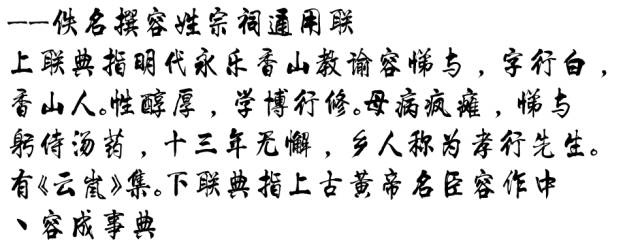 ——佚名撰容姓宗祠通用联
上联典指明代永乐香山教谕容悌与，字行白，
香山人。性醇厚，学博行修。母病疯瘫，悌与
躬侍汤药，十三年无懈，乡人称为孝行先生。
有《云岚》集。下联典指上古黄帝名臣容作中
、容成事典